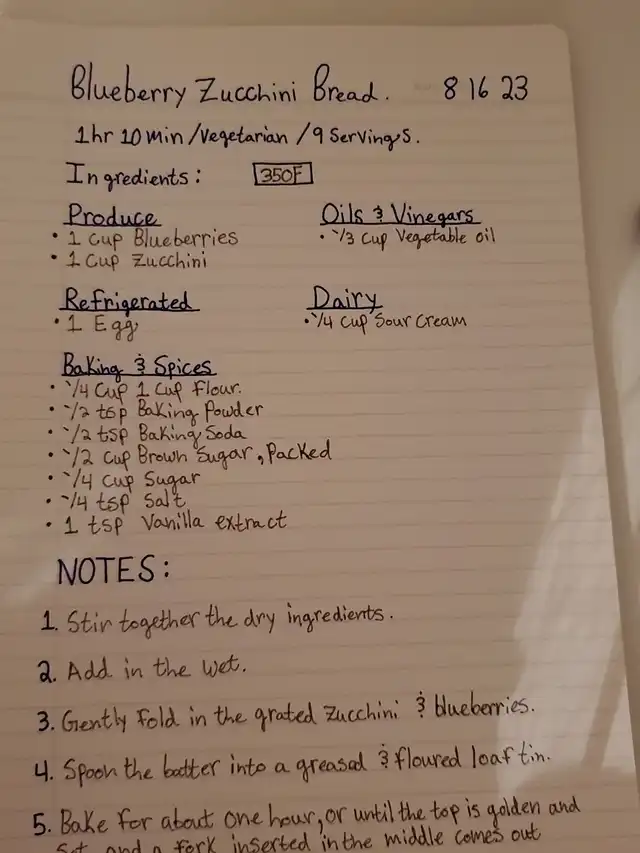 Blueberry Zucchini Bread. 8 16 23
1hr 10 min / Vegetarian / 9 Servings.
Ingredients: 350F
Produce
• 1 Cup Blueberries
• 1 Cup Zucchini
Oils & Vinegars
• 1/3 Cup Vegetable oil
Refrigerated
• 1 Egg
Dairy
• 1/4 Cup Sour Cream
Baking & Spices
• 1/4 Cup 1 Cup Flour.
• 1/2 tsp Baking Powder
• 1/2 tsp Baking Soda
• 1/2 Cup Brown Sugar, Packed
• 1/4 Cup Sugar
• 1/4 tsp Salt
• 1 tsp Vanilla extract
NOTES:
1. Stir together the dry ingredients.
2. Add in the wet.
3. Gently Fold in the grated Zucchini & blueberries.
4. Spoon the batter into a greased & floured loaf tin.
5. Bake for about one hour, or until the top is golden and
Set, and a fork inserted in the middle comes out